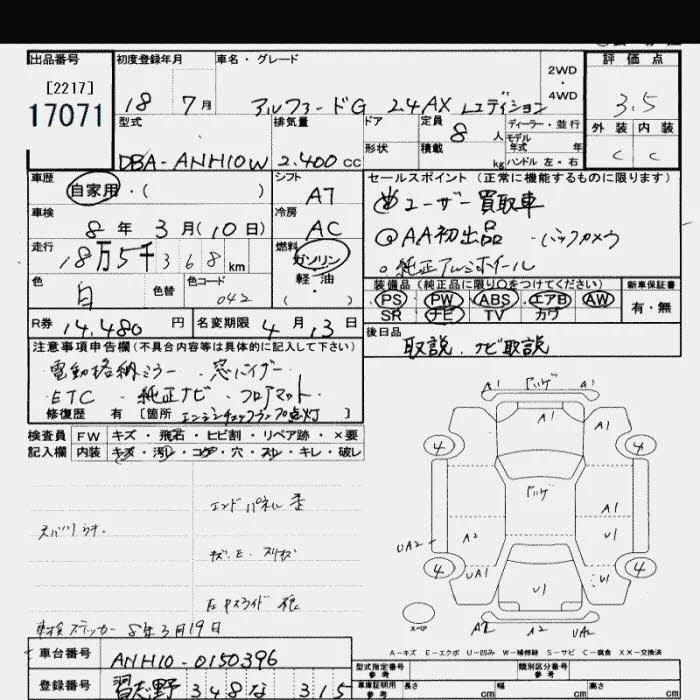 出品番号 初度登録年月 車名・グレード 評価点
[2217]
17071
18 7月 アルファードG 2.4AX Lエディション
2WD・4WD
3.5
外装 内装
C C
型式 排気量 ドア 定員 8人 ディーラー・並行
モデル年式 年式
形状 積載 kg ハンドル 左・右
DBA-ANH10W 2.400cc
車歴 自家用・( ) シフト AT
セールスポイント (正常に機能するものに限ります)
ユーザー買取車
◎AA初出品 ・バックカメラ
○純正アルミホイール
車検 8年3月(10日) 冷房 AC
走行 18万5千368km 燃料 ガソリン 軽・油 ( )
色 白 色替 色コード 042
装備品(純正品に限り○をつけてください) 新車保証書
PS PW ABS エアB AW
SR ナビ TV カワ
有・無
R券 14,480円 名変期限 4月13日
後日品 取説、ナビ取説
注意事項申告欄(不具合内容等は具体的に記入して下さい)
・電動格納ミラー ・窓バイザー
・ETC ・純正ナビ ・フロアマット
修復歴 有 [箇所 エンジンチェックランプ点灯]
検査員記入欄
FW キズ・飛石・ヒビ割・リペア跡・×要
内装 キズ・汚レ・コゲ・穴・スレ・キレ・破レ
エンドパネル歪
キズ.E.スリキズ
車検ステッカー 8年3月19日
車台番号 ANH10-0150396
登録番号 習志野 348 な 315
A1 ハゲ A1
A1 A1
4 4
ハゲ
A1
UA2 A2 U1
4 UA1 U1 U1 4
スペア A2 A2 UA2
A-キズ E-エクボ U-凹み W-補修跡 S-サビ C-腐食 XX-交換済
型式指定番号 参考 類別区分番号 参考
車庫証明用 参考 長さ cm 幅 cm 高さ cm